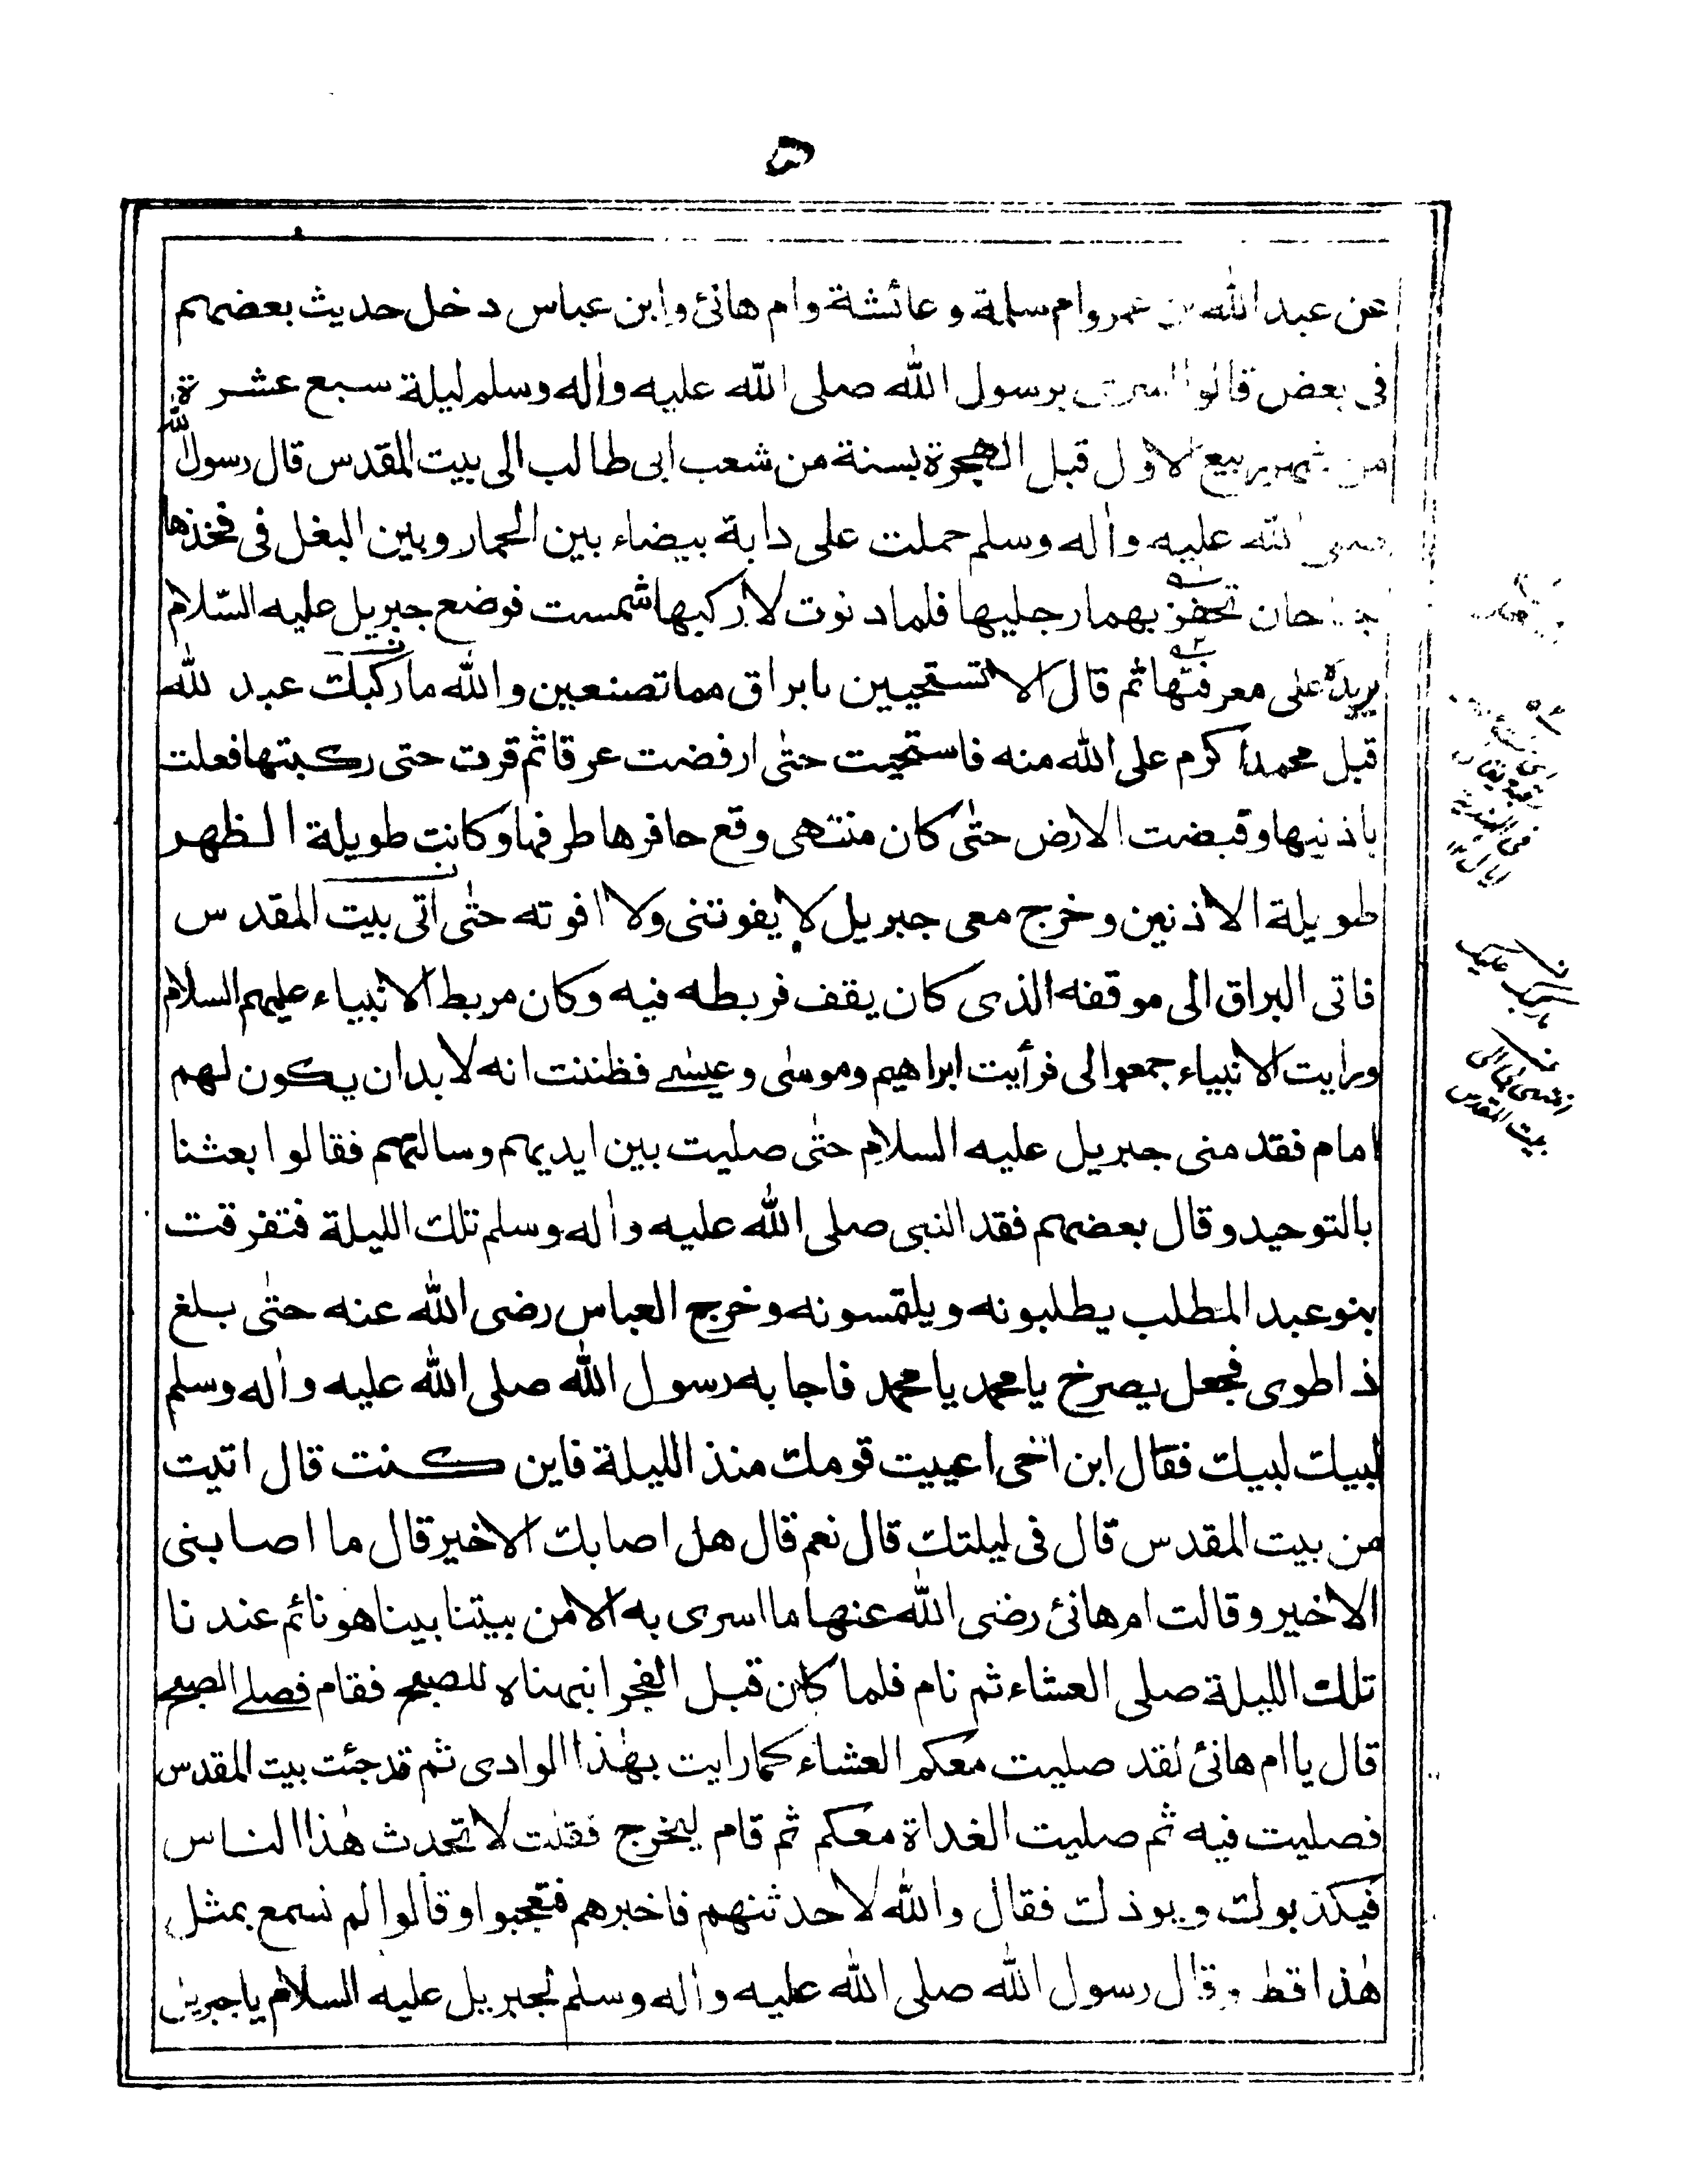 عن عبد الله بن عمرو ام سلمة و عائشة وام هانئ وابن عباس دخل حديث بعضهم
فى بعض قالوا اسرى برسول الله صلى الله عليه واٰله وسلم ليلة سبع عشرة
من شهر ربيع الاول قبل الهجرة بسنة من شعب ابى طالب الى بيت المقدس قال رسول الله
صلى الله عليه واٰله وسلم حملت على دابة بيضاء بين الحمار وبين البغل فى فخذها
جناحان تحفز بهما رجليها فلما دنوت لاركبها شمست فوضع جبريل عليه السّلام
يده على معرفتها ثم قال الا تستحيين يا براق مما تصنعين والله ما ركبك عبد لله
قبل محمد اكرم على الله منه فاستحيت حتى ارفضت عرقا ثم قرت حتى ركبتها فعلت
باذنيها وقبضت الارض حتى كان منتهى وقع حافرها طرفها وكانت طويلة الظهر
طويلة الاذنين وخرج معى جبريل لا يفوتنى ولا افوته حتى اتى بيت المقدس
فاتى البراق الى موقفه الذى كان يقف فربطه فيه وكان مربط الانبياء عليهم السلام
ورايت الانبياء جمعوا لى فرأيت ابراهيم وموسى وعيسے فظننت انه لابد ان يكون لهم
امام فقدمنى جبريل عليه السلام حتى صليت بين ايديهم وسالتهم فقالوا بعثنا
بالتوحيد وقال بعضهم فقد النبى صلى الله عليه واٰله وسلم تلك الليلة فتفرقت
بنو عبد المطلب يطلبونه ويلتمسونه وخرج العباس رضى الله عنه حتى بلغ
ذا طوى فجعل يصرخ يا محمد يا محمد فاجابه رسول الله صلى الله عليه واٰله وسلم
لبيك لبيك فقال ابن اخى اعييت قومك منذ الليلة فاين كنت قال اتيت
من بيت المقدس قال فى ليلتك قال نعم قال هل اصابك الاخير قال ما اصابنى
الاخير وقالت ام هانئ رضى الله عنها ما اسرى به الا من بيتنا بينا هو نائم عندنا
تلك الليلة صلى العشاء ثم نام فلما كان قبل الفجر انبهناه للصبح فقام فصلے الصبح
قال يا ام هانئ لقد صليت معكم العشاء كما رايت بهٰذا الوادى ثم قد جئت بيت المقدس
فصليت فيه ثم صليت الغداة معكم ثم قام ليخرج فقلت لا تحدث هٰذا الناس
فيكذبوك ويوذك فقال والله لاحدثنهم فاخبرهم فتعجبوا وقالوا لم نسمع بمثل
هٰذا قط وقال رسول الله صلى الله عليه واٰله وسلم لجبريل عليه السلام يا جبريل
بيت المقدس